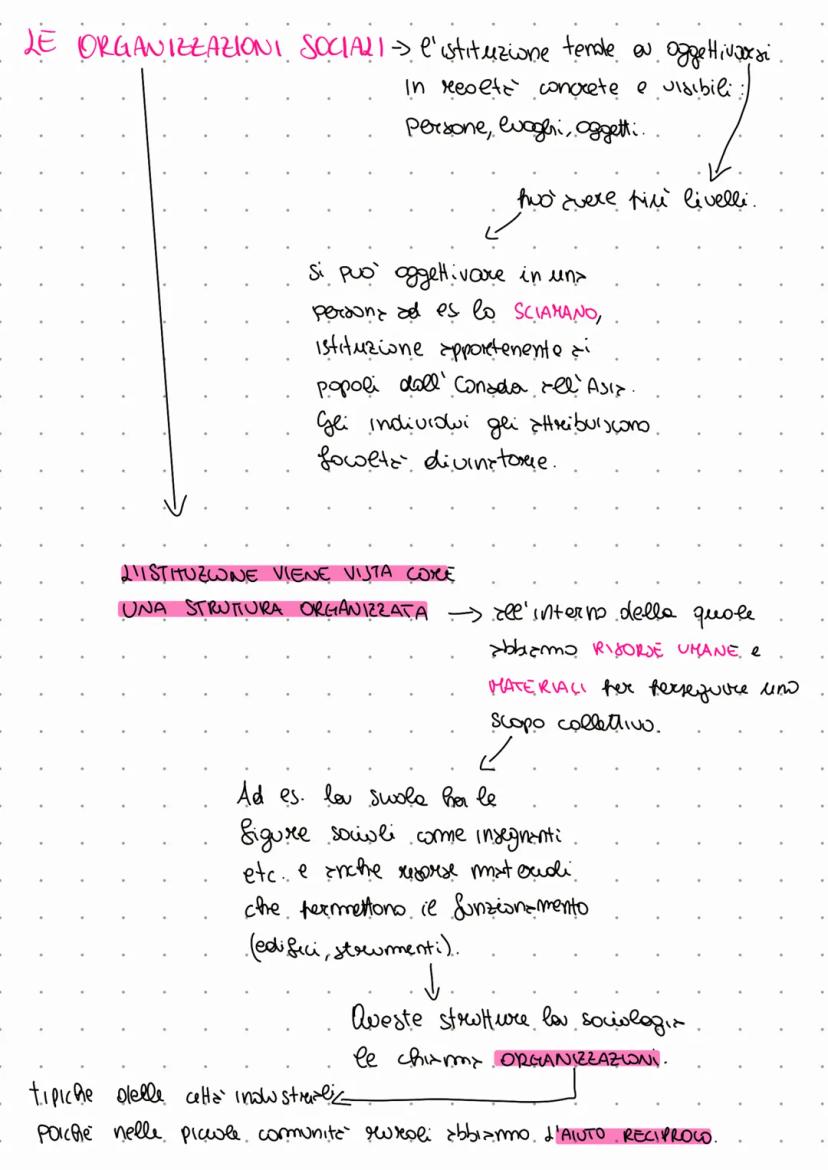 LE ORGANIZZAZIONI SOCIALI → l'istituzione tende a oggettivarsi
in realtà concrete e visibili:
persone, luoghi, oggetti.
può avere più livelli.
Si può oggettivare in una
persona ad es lo SCIAMANO,
istituzione appartenente ai
popoli dall' Canada all'Asia.
Gli individui gli attribuiscono
facoltà divinatorie.
L'ISTITUZIONE VIENE VISTA COME
UNA STRUTTURA ORGANIZZATA → all'interno della quale
abbiamo RISORSE UMANE e
MATERIALI per perseguire uno
scopo collettivo.
Ad es. la suola ha le
figure sociali come insegnanti
etc. e anche risorse materiali
che permettono il funzionamento
(edifici, strumenti).
Queste strutture la sociologia
le chiama ORGANIZZAZIONI.
tipiche delle città industriali
poiché nelle piccole comunità rurali abbiamo l'AIUTO RECIPROCO.